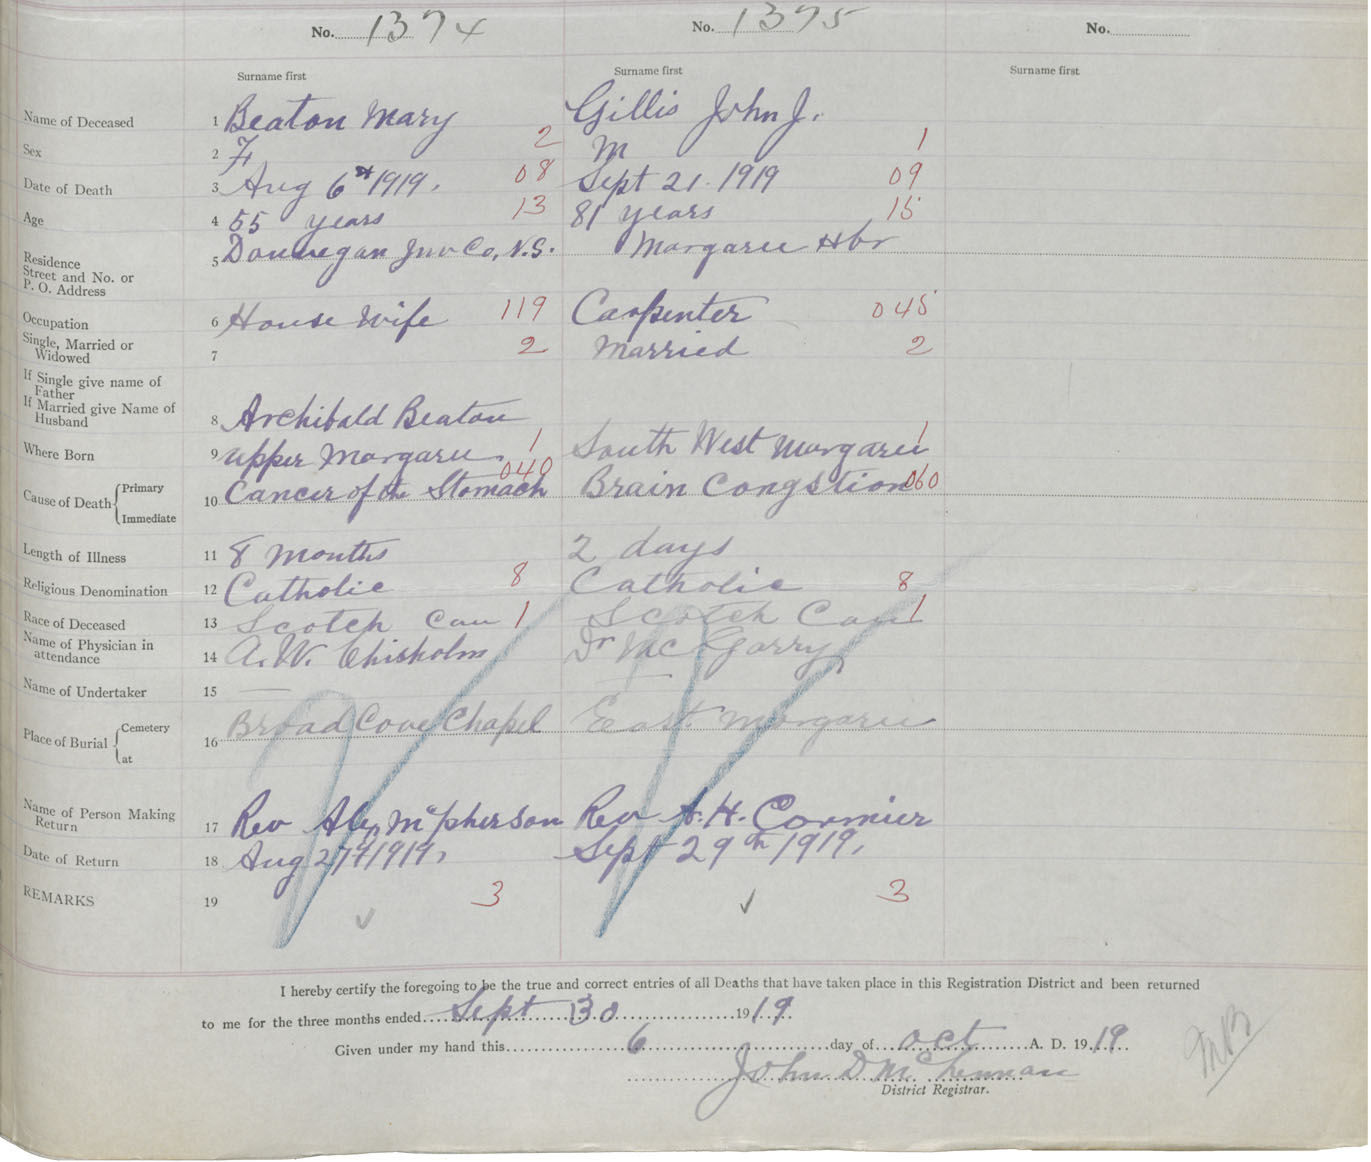 No. 1374 No. 1375 No.
Surname first Surname first Surname first
Name of Deceased 1 Beaton Mary Gillis John J.
Sex 2 F 2 M 1
Date of Death 3 Aug 6th 1919. 08 Sept 21. 1919 09
Age 4 55 years 13 81 years 15
Residence Street and No. or P. O. Address 5 Dounegan Inv Co, N.S. Margaree Hbr
Occupation 6 House Wife 119 Carpenter 045
Single, Married or Widowed 7 2 Married 2
If Single give name of Father
If Married give Name of Husband 8 Archibald Beaton
Where Born 9 Upper Margaree. 1 South West Margaree 1
Cause of Death { Primary Immediate 10 Cancer of the Stomach 040 Brain Congstion 060
Length of Illness 11 8 months 2 days
Religious Denomination 12 Catholic 8 Catholic 8
Race of Deceased 13 Scotch Can 1 Scotch Can 1
Name of Physician in attendance 14 A. W. Chisholm Dr McGarry
Name of Undertaker 15 — —
Place of Burial { Cemetery at 16 Broad Cove Chapel East Margaree
Name of Person Making Return 17 Rev Alex McPherson Rev A. H. Cormier
Date of Return 18 Aug 27th 1919. Sept 29th 1919.
REMARKS 19 3 3
I hereby certify the foregoing to be the true and correct entries of all Deaths that have taken place in this Registration District and been returned
to me for the three months ended Sept 30 1919.
Given under my hand this 6 day of Oct A. D. 1919
John D McLennan
District Registrar.
MB